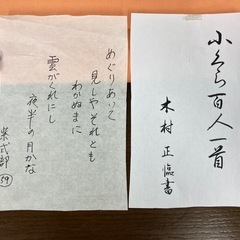 小くら百人一首
木村 正 臨書
めぐりあいて
見しやそれとも
わかぬまに
雲がくれにし
夜半の月かな
紫式部